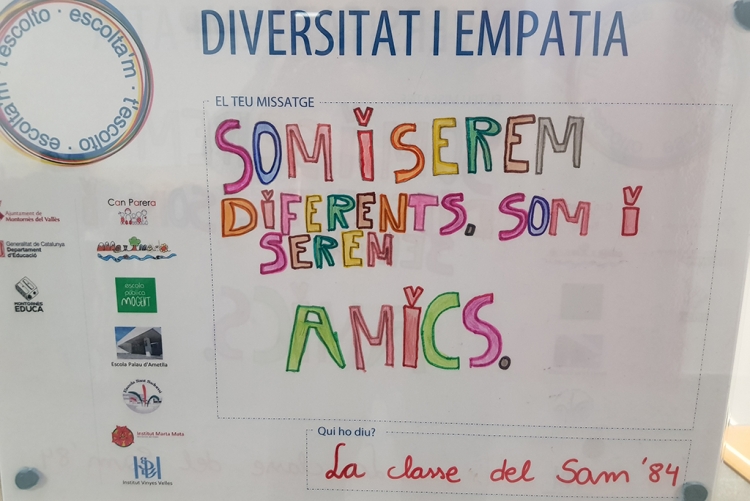 t'escolto · escolta'm · t'escolto · escolta'm ·
DIVERSITAT I EMPATIA
EL TEU MISSATGE
SOM I SEREM
DIFERENTS. SOM I
SEREM
AMICS.
Qui ho diu?
La classe del Sam '84
Ajuntament de
Montornès del Vallès
Generalitat de Catalunya
Departament
d'Educació
MONTORNÈS
EDUCA
Can Parera
escola
pública
MOGENT
Escola Palau d'Ametlla
Institut Marta Mata
Institut Vinyes Velles